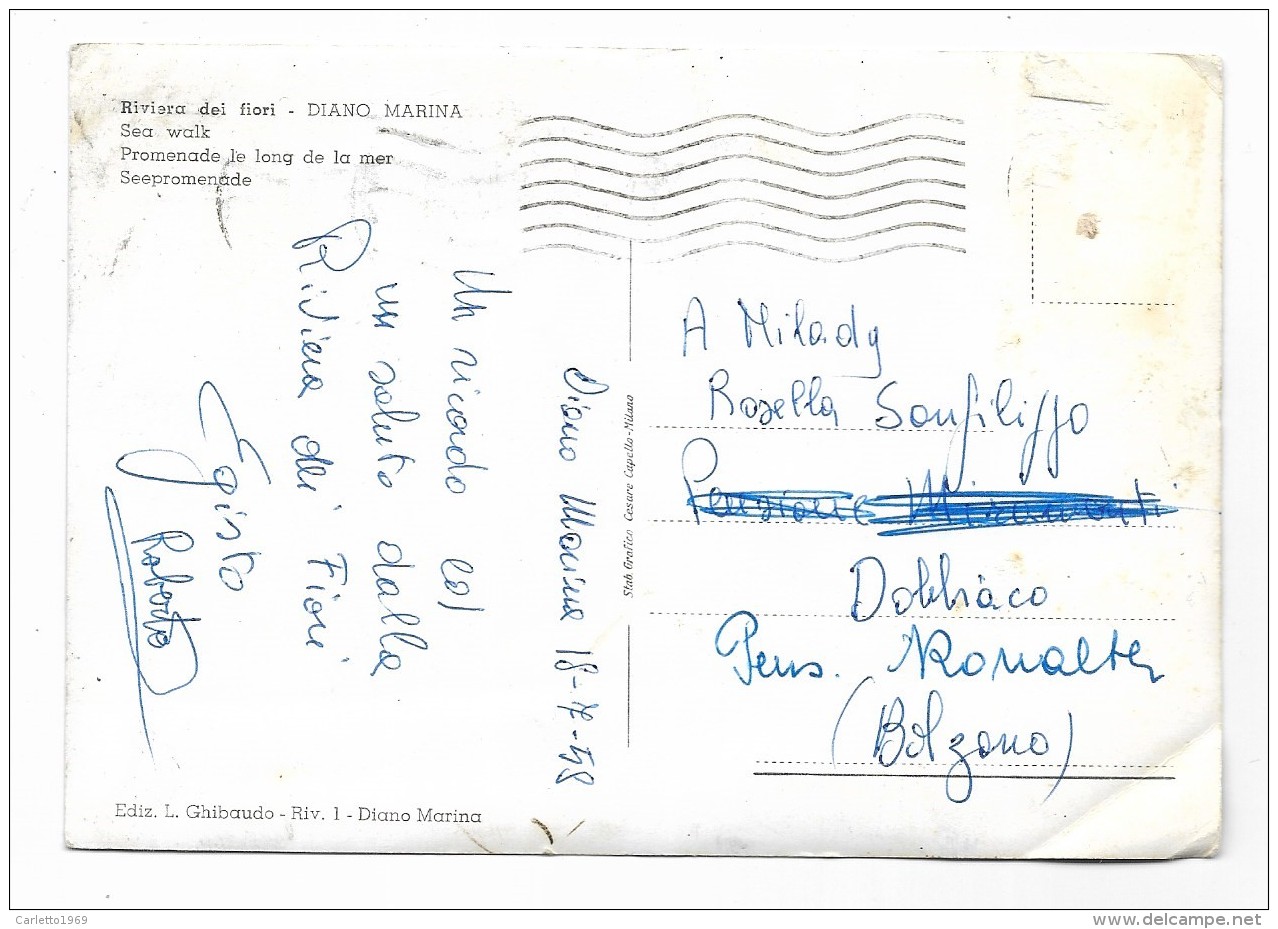 Riviera dei fiori - DIANO MARINA
Sea walk
Promenade le long de la mer
Seepromenade
Diano Marina 18-7-58
Un ricordo ed
un saluto dalla
Riviera dei Fiori
Egisto
Roberto
Ediz. L. Ghibaudo - Riv. 1 - Diano Marina
Stab Grafico Cesare Capello-Milano
A Milady
Rosella Sanfilippo
Pensione Miramonti
Dobbiaco
Pens.
(Bolzano)
Carletto1969
delcampe.net